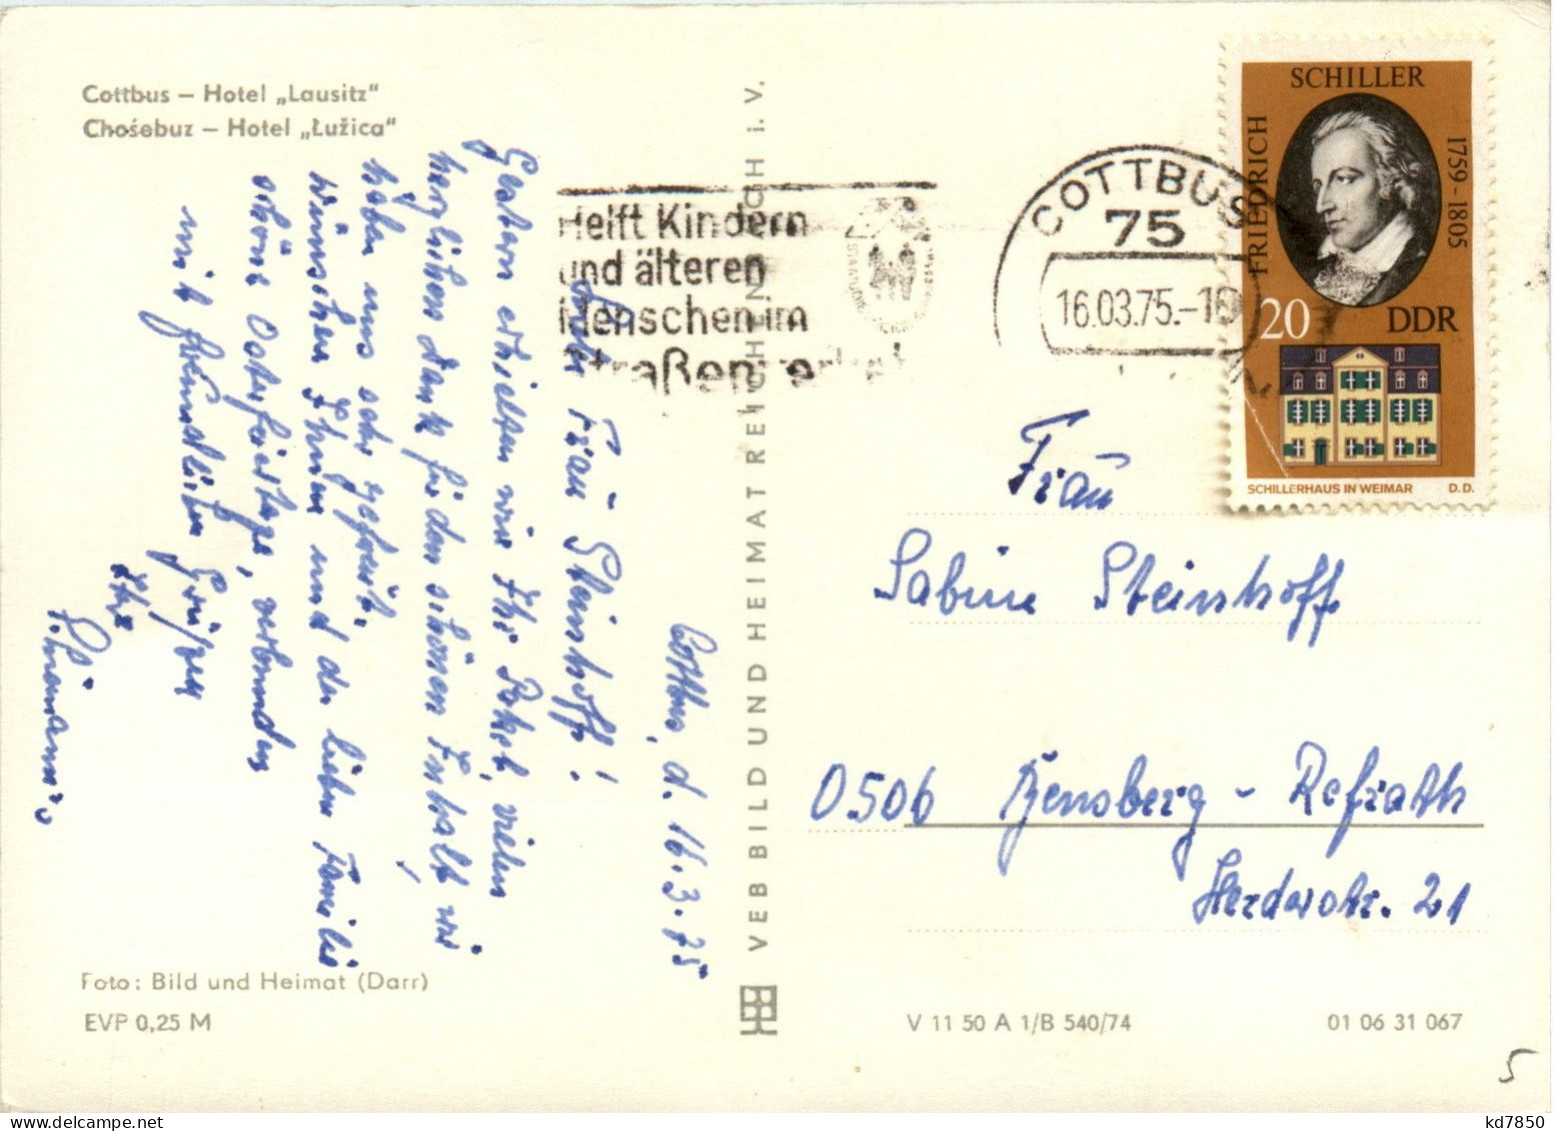 Cottbus – Hotel „Lausitz“
Chośebuz – Hotel „Łužica“
Cottbus, d. 16.3.75
Frau Steinhoff!
Gestern erhielten wir Ihr Paket, vielen
herzlichen Dank für den schönen Inhalt, wir
haben uns sehr gefreut.
Wünschen Ihnen und der lieben Familie
schöne Osterfeiertage, verbunden
mit freundlichen Grüßen
Ihre
Foto: Bild und Heimat (Darr)
EVP 0,25 M
VEB BILD UND HEIMAT REICHENBACH i. V.
Helft Kindern
und älteren
Menschen im
Straßenverkehr
COTTBUS
75
16.03.75.-18
FRIEDRICH
SCHILLER
1759-1805
20
DDR
SCHILLERHAUS IN WEIMAR D. D.
Frau
Sabine Steinhoff
0506 Bensberg - Refrath
Herderstr. 21
V 11 50 A 1/B 540/74
01 06 31 067
5
kd7850